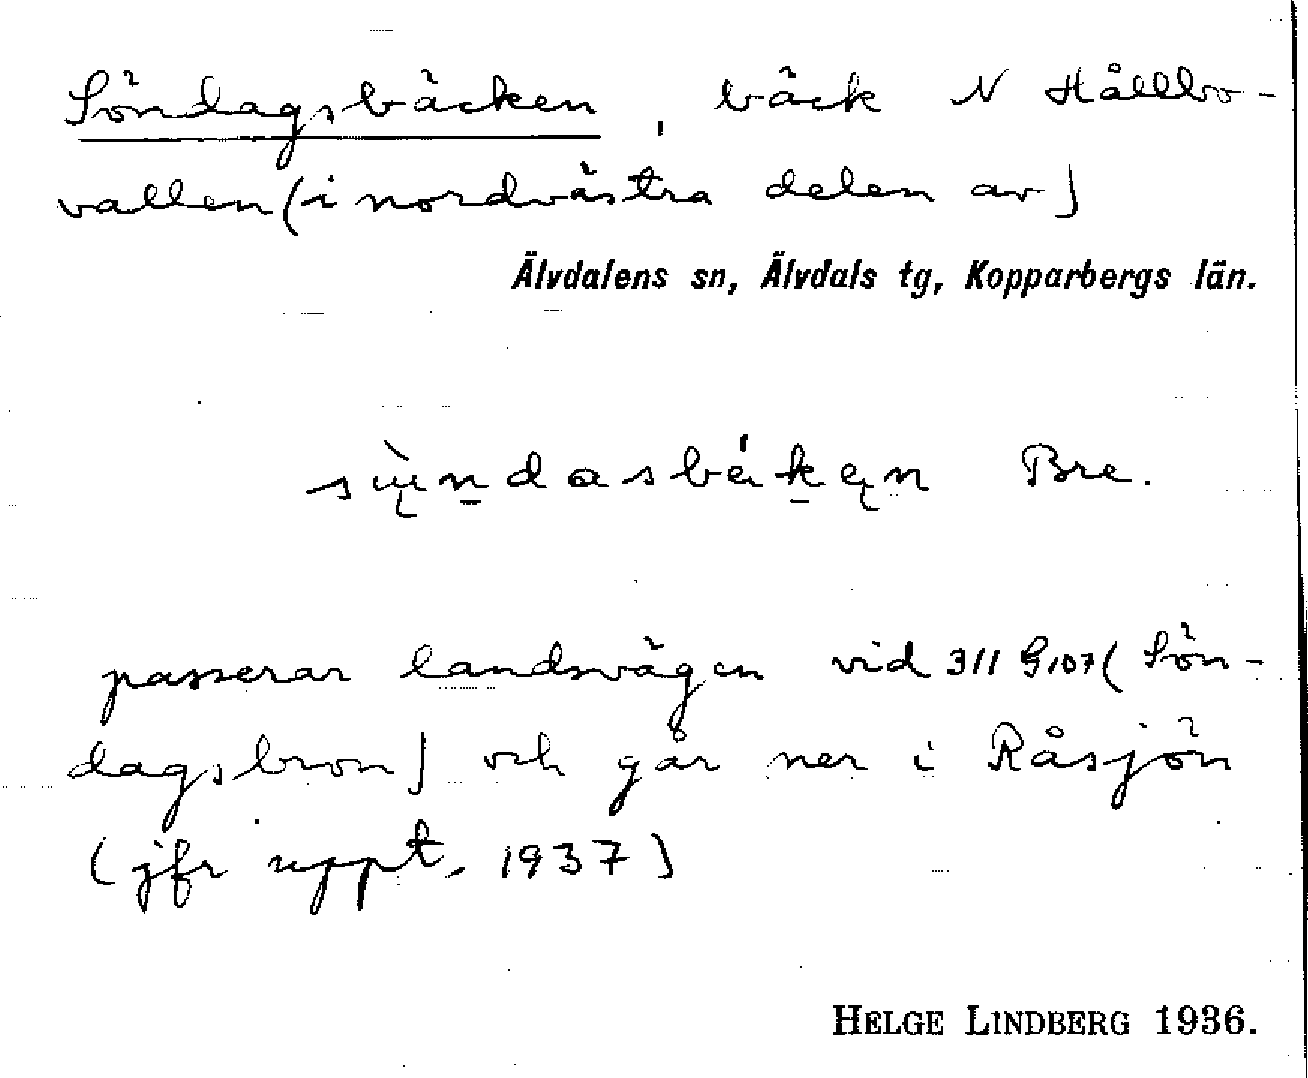 Söndagsbäcken, bäck N Hållbo-
vallen (i nordvästra delen av)
Älvdalens sn, Älvdals tg, Kopparbergs län.
Bre.
passerar landsvägen vid 311 G107 (Sön-
dagsbron) och går ner i Råsjön
(jfr uppt. 1937)
HELGE LINDBERG 1936.